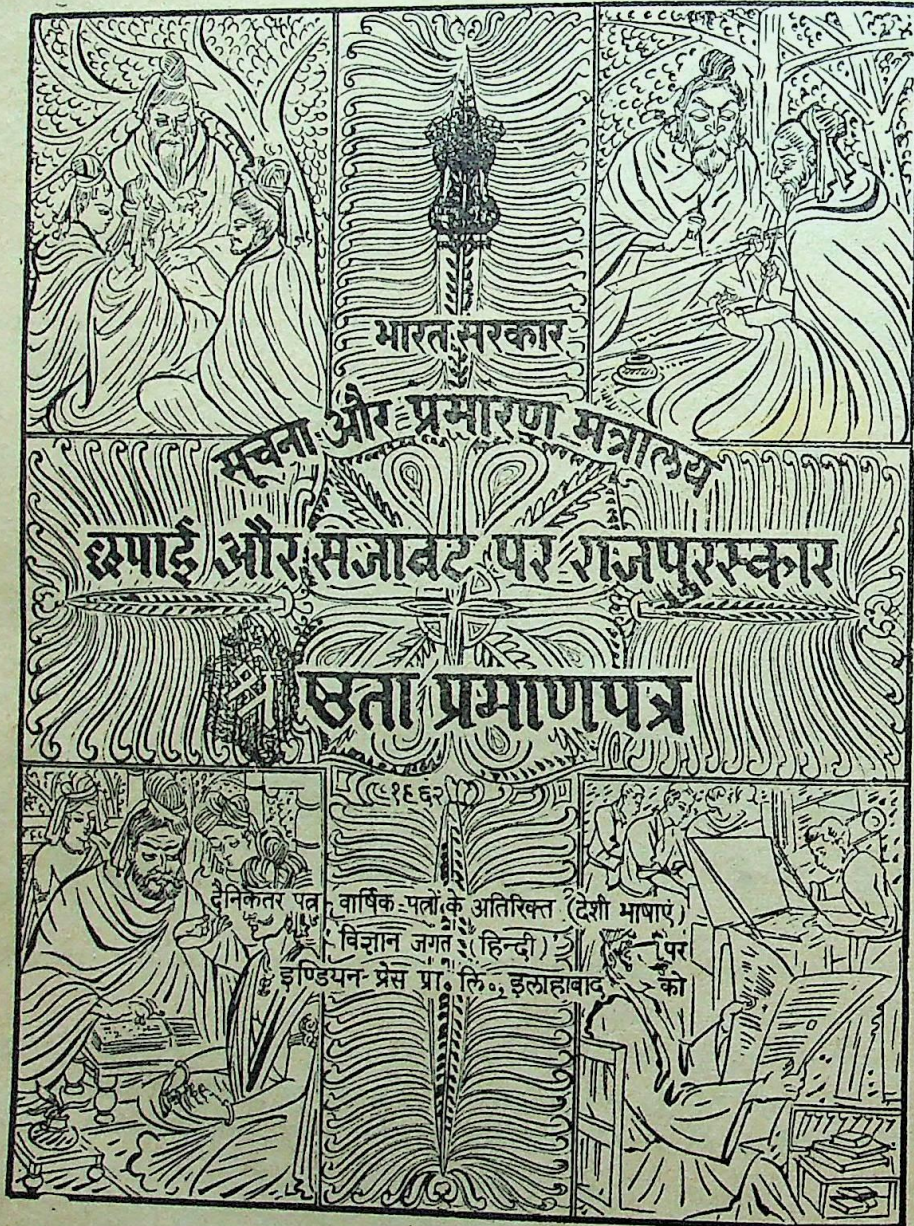 भारत सरकार
सूचना और प्रसारण मंत्रालय
छपाई और सजावट पर राजपुरस्कार
श्रेष्ठता प्रमाणपत्र
१९६२
दैनिकेतर पत्र - वार्षिक पत्रों के अतिरिक्त (देशी भाषाएं)
विज्ञान जगत (हिन्दी) पर
इण्डियन प्रेस प्रा. लि., इलाहाबाद को